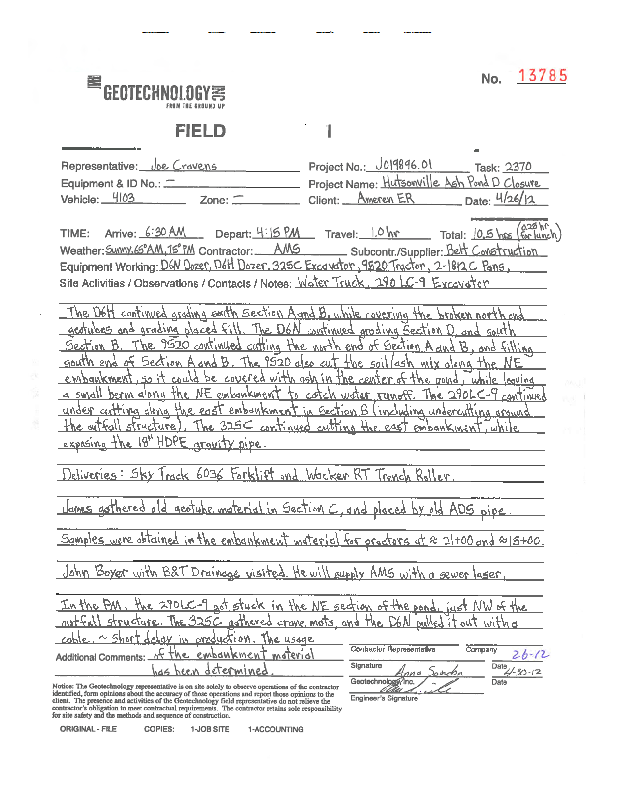 No. 13785
GEOTECHNOLOGY
FROM THE GROUND UP
FIELD
Representative: Joe Cravens Project No.: J019896.01 Task: 2370
Equipment & ID No.: — Project Name: Hutsonville Ash Pond D Closure
Vehicle: 4103 Zone: — Client: Ameren ER Date: 4/26/12
TIME: Arrive: 6:30 AM Depart: 4:15 PM Travel: 1.0 hr Total: 10.5 hrs (0.25 hr for lunch)
Weather: Sunny, 65° AM, 75° PM Contractor: AMS Subcontr./Supplier: Belt Construction
Equipment Working: D6N Dozer, D6H Dozer, 325C Excavator, 9520 Tractor, 2-1812C Pans,
Site Activities / Observations / Contacts / Notes: Water Truck, 290 LC-9 Excavator
The D6H continued grading south Section A and B, while covering the broken north end
geotubes and grading placed fill. The D6N continued grading Section D, and south
Section B. The 9520 continued cutting the north end of Section A and B, and filling
south end of Section A and B. The 9520 also cut the soil/ash mix along the NE
embankment, so it could be covered with ash in the center of the pond, while leaving
a small berm along the NE embankment to catch water runoff. The 290LC-9 continued
under cutting along the east embankment in Section B (including undercutting around
the outfall structure). The 325C continued cutting the east embankment, while
exposing the 18" HDPE gravity pipe.
Deliveries: Sky Track 6036 Forklift and Wacker RT Trench Roller.
James gathered old geotube material in Section C, and placed by old ADS pipe.
Samples were obtained in the embankment material for proctors at ≈ 21+00 and ≈18+00.
John Boyer with B&T Drainage visited. He will supply AMS with a sewer laser.
In the PM, the 290LC-9 got stuck in the NE section of the pond, just NW of the
outfall structure. The 325C gathered crane mats, and the D6N pulled it out with a
cable. ~ Short delay in production. The usage
Additional Comments: of the embankment material
has been determined.
Contractor Representative Company 26-12
Signature Date 4-30-12
Geotechnology, Inc. Date
Engineer's Signature
Notice: The Geotechnology representative is on site solely to observe operations of the contractor
identified, form opinions about the accuracy of those operations and report those opinions to the
client. The presence and activities of the Geotechnology field representative do not relieve the
contractor's obligation to meet contractual requirements. The contractor retains sole responsibility
for site safety and the methods and sequence of construction.
ORIGINAL - FILE COPIES: 1-JOB SITE 1-ACCOUNTING